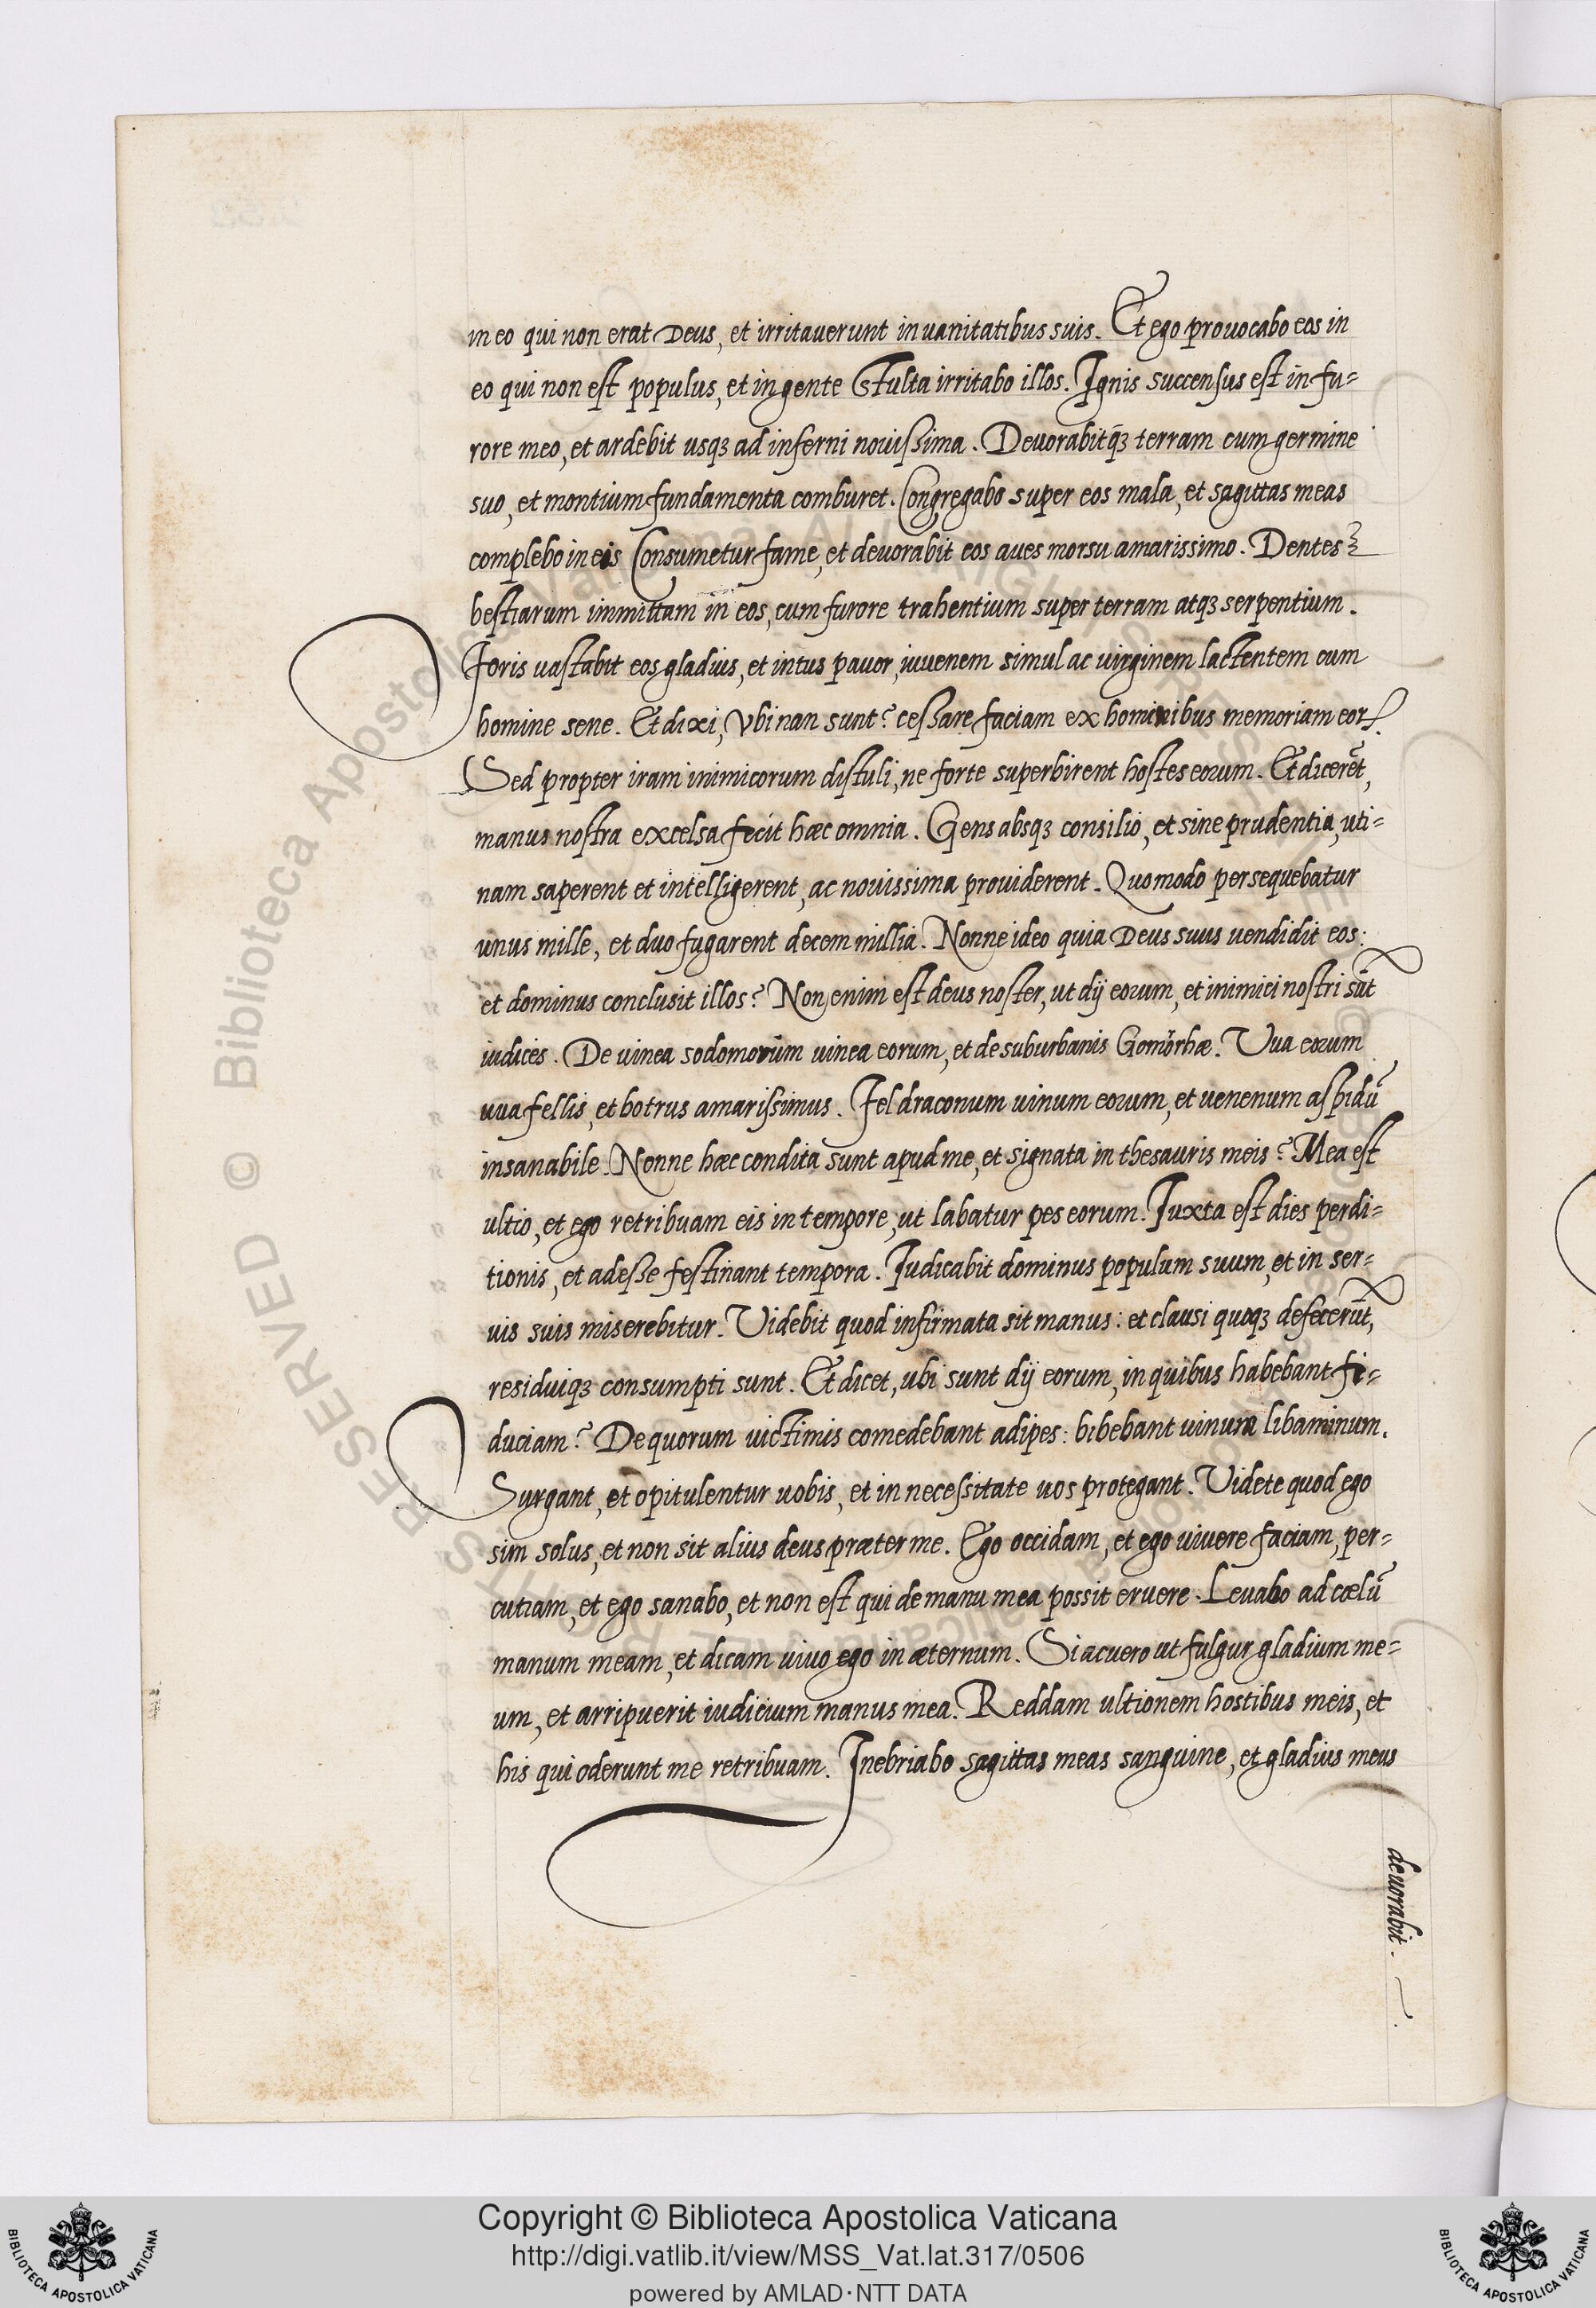 in eo qui non erat Deus, et irritauerunt in vanitatibus suis. Et ego prouocabo eos in
eo qui non est populus, et in gente stulta irritabo illos. Ignis succensus est in fu=
rore meo, et ardebit usqꝫ ad inferni nouissima. Deuorabitqꝫ terram cum germine
suo, et montium fundamenta comburet. Congregabo super eos mala, et sagittas meas
complebo in eis Consumetur fame, et deuorabit eos aues morsu amarissimo. Dentes
bestiarum immittam in eos, cum furore trahentium super terram atqꝫ serpentium.
Foris uastabit eos gladius, et intus pauor, iuvenem simul ac virginem lactentem cum
homine sene. Et dixi, Vbi nan sunt? cessare faciam ex hominibus memoriam eorꝝ.
Sed propter iram inimicorum distuli, ne forte superbirent hostes eorum. Et dicerēt,
manus nostra excelsa fecit hæc omnia. Gens absqꝫ consilio, et sine prudentia, uti=
nam saperent et intelligerent, ac nouissima prouiderent. Quomodo persequebatur
unus mille, et duo fugarent decem millia. Nonne ideo quia Deus suus vendidit eos:
et dominus conclusit illos? Non enim est deus noster, ut dij eorum, et inimici nostri sūt
iudices. De uinea sodomorum uinea eorum, et de suburbanis Gomorrhæ. Vua eorum
uua fellis, et botrus amarissimus. Fel draconum uinum eorum, et uenenum aspidū
insanabile. Nonne hæc condita sunt apud me, et signata in thesauris meis? Mea est
ultio, et ego retribuam eis in tempore, ut labatur pes eorum. Iuxta est dies perdi=
tionis, et adesse festinant tempora. Iudicabit dominus populum suum, et in ser=
uis suis miserebitur. Videbit quod infirmata sit manus: et clausi quoqꝫ defecerūt,
residuiqꝫ consumpti sunt. Et dicet, ubi sunt dij eorum, in quibus habebant fi=
duciam? De quorum uictimis comedebant adipes: bibebant uinum libaminum.
Surgant, et opitulentur uobis, et in necessitate uos protegant. Videte quod ego
sim solus, et non sit alius deus præter me. Ego occidam, et ego uivere faciam, per=
cutiam, et ego sanabo, et non est qui de manu mea possit eruere. Leuabo ad cœlū
manum meam, et dicam uiuo ego in æternum. Si acuero ut fulgur gladium me=
um, et arripuerit iudicium manus mea. Reddam ultionem hostibus meis, et
his qui oderunt me retribuam. Inebriabo sagittas meas sanguine, et gladius meus
deuorabit.
Copyright © Biblioteca Apostolica Vaticana
http://digi.vatlib.it/view/MSS_Vat.lat.317/0506
powered by AMLAD·NTT DATA